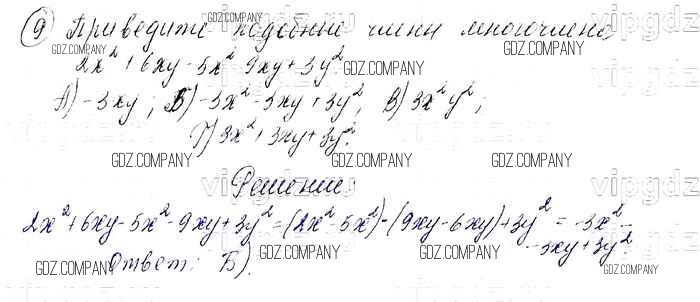 9) Приведите подобные члены многочлена
2x² + 6xy - 5x² - 9xy + 3y²
А) -3xy; Б) -3x² - 3xy + 3y²; В) 3x²y²;
Г) 3x² + 3xy + 3y².
Решение:
2x² + 6xy - 5x² - 9xy + 3y² = (2x² - 5x²) - (9xy - 6xy) + 3y² = -3x² -
- 3xy + 3y².
Ответ: Б).
GDZ.COMPANY
GDZ.COMPANY
GDZ.COMPANY
GDZ.COMPANY
GDZ.COMPANY
GDZ.COMPANY
GDZ.COMPANY
GDZ.COMPANY
GDZ.COMPANY
GDZ.COMPANY
GDZ.COMPANY
GDZ.COMPANY
GDZ.COMPANY
GDZ.COMPANY
vipgdz
vipgdz
vipgdz